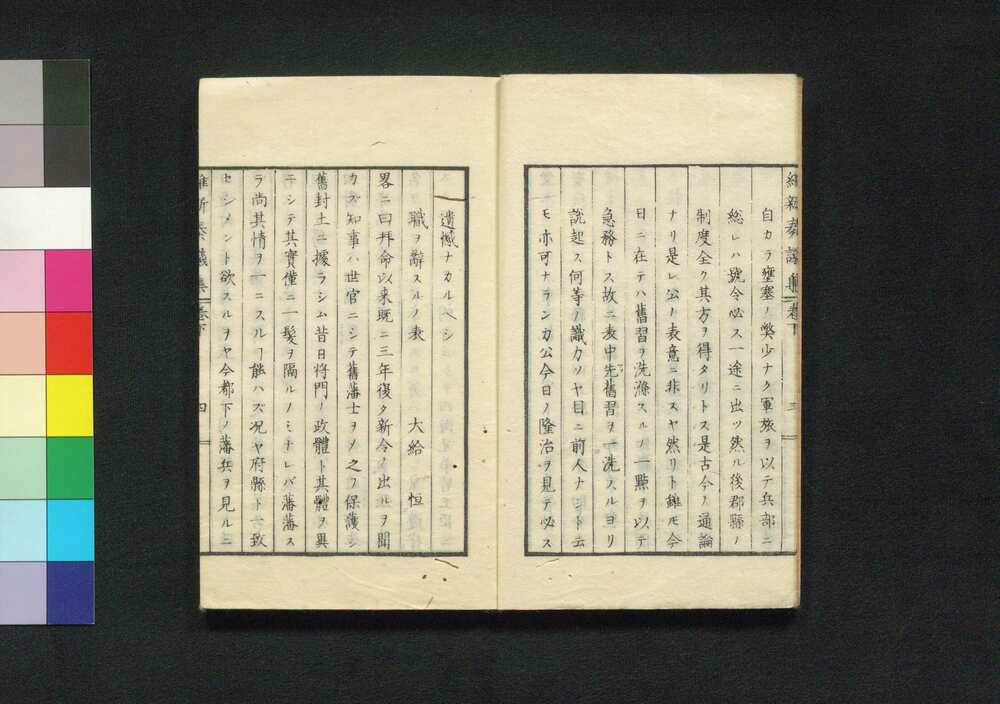 維新奏議集 卷下 三
自カラ壅塞ノ弊少ナク軍旅ヲ以テ兵部ニ
總レハ號令必ス一途ニ出ツ然ル後郡縣ノ
制度全ク其方ヲ得タリトス是古今ノ通論
ナリ是レ公ノ表意ニ非スヤ然リト雖モ今
日ニ在テハ舊習ヲ洗滌スルノ一點ヲ以テ
急務トス故ニ表中先舊習ヲ一洗スルヨリ
説起ス何等ノ識力ソヤ目ニ前人ナシト云
モ亦可ナランカ公今日ノ隆治ヲ見テ必ス
遺憾ナカルヘシ
職ヲ辭スルノ表 大給 恒
畧ニ曰拜命以来既ニ三年復タ新令ノ出ルヲ聞
カズ知事ハ世官ニシテ舊藩士ヲメ之ヲ保護シ
舊封土ニ據ラシム昔日将門ノ政體ト其體ヲ異
ニシテ其實僅ニ一髪ヲ隔ルノミナレバ藩藩ス
ラ尚其情ヲ一ニスルヿ能ハズ况ヤ府縣ト一致
セシメント欲スルヲヤ今都下ノ藩兵ヲ見ルニ
維新奏議集 卷下 四